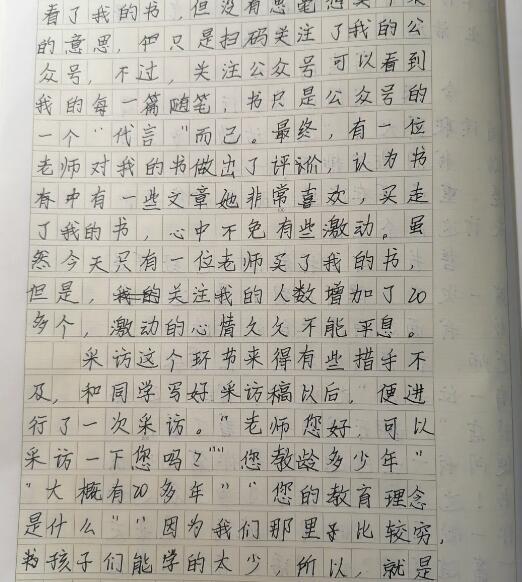 看了我的书，但没有想
的意思，但只是扫码关注了我的公
众号，不过，关注公众号可以看到
我的每一篇随笔，书只是公众号的
一个“代言”而已。最终，有一位
老师对我的书做出了评价，认为书
本中有一些文章她非常喜欢，买走
了我的书，心中不免有些激动。虽
然今天只有一位老师买了我的书，
但是，我的关注我的人数增加了20
多个，激动的心情久久不能平息。
采访这个环节来得有些措手不
及，和同学写好采访稿以后，便进
行了一次采访。“老师您好，可以
采访一下您吗？”“您教龄多少年”
“大概有20多年”“您的教育理念
是什么”“因为我们那里了比较穷，
孩子们能学的太少，所以，就是